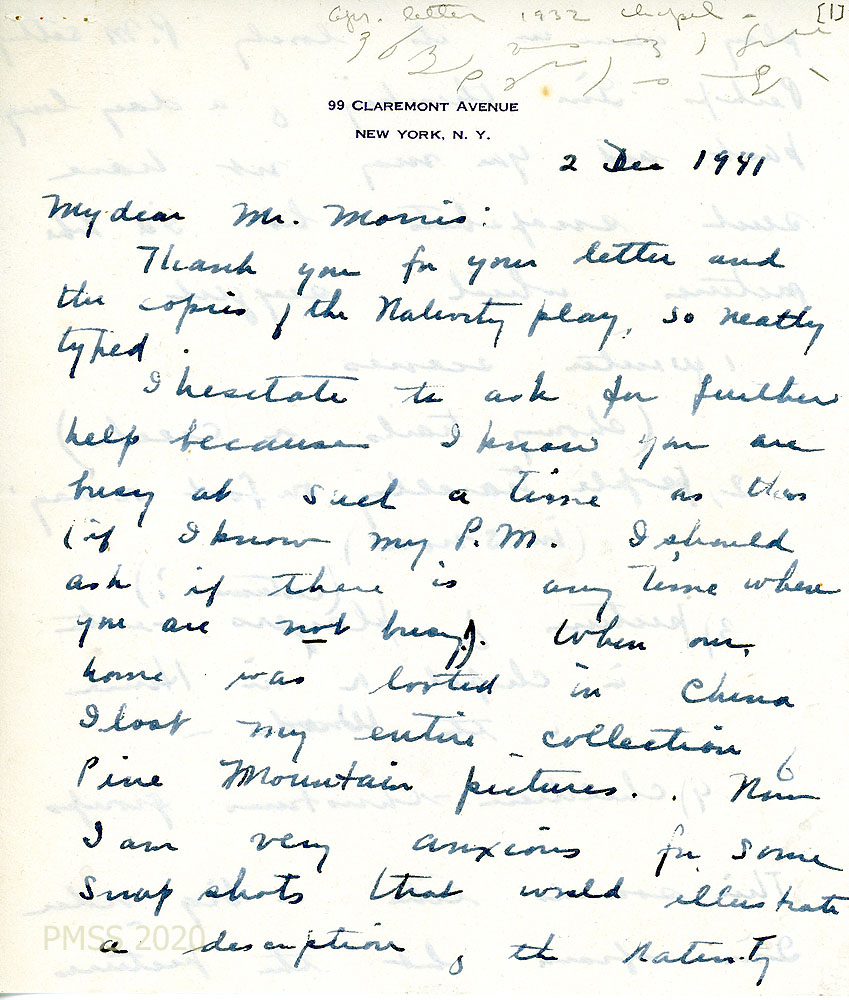 Apr. letter 1932 chapel - [1]
99 CLAREMONT AVENUE
NEW YORK, N. Y.
2 Dec 1941
My dear Mr. Morris:
Thank you for your letter and
the copies of the Nativity play, so neatly
typed.
I hesitate to ask for further
help because I know you are
busy at such a time as this
(if I know my P.M. I should
ask if there is any time when
you are not busy!). When our
home was looted in China
I lost my entire collection of
Pine Mountain pictures. . Now
I am very anxious for some
snap shots that would illustrate
a description of the Nativity
PMSS 2020